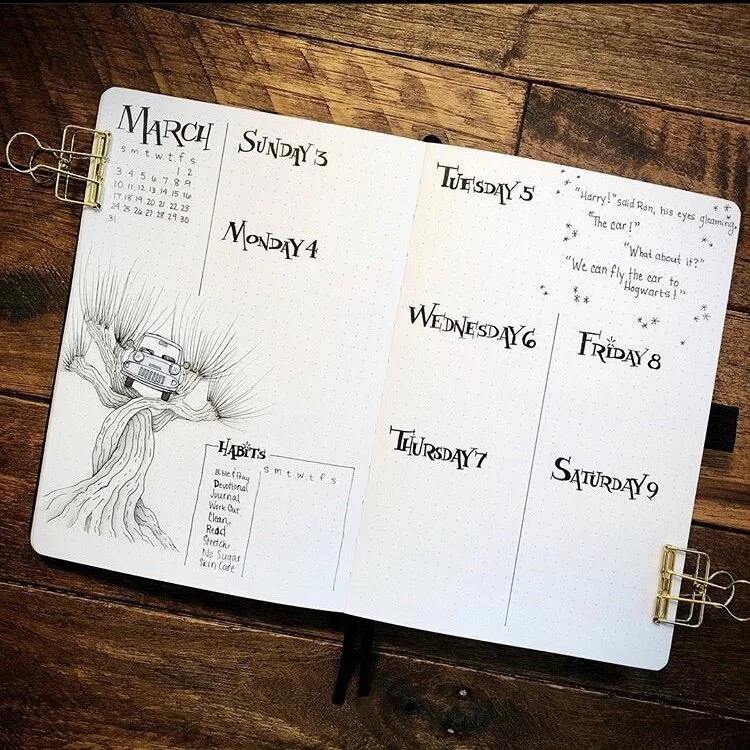 MARCH
s m t w t f s
1 2
3 4 5 6 7 8 9
10 11 12 13 14 15 16
17 18 19 20 21 22 23
24 25 26 27 28 29 30
31
SUNDAY 3
MONDAY 4
HABITS
s m t w t f s
Bible & Pray
Devotional
Journal
Work Out
Clean
Read
Stretch
No Sugar
Skin Care
TUESDAY 5
"Harry!" said Ron, his eyes gleaming.
"The car!"
"What about it?"
"We can fly the car to
Hogwarts!"
WEDNESDAY 6
THURSDAY 7
FRIDAY 8
SATURDAY 9